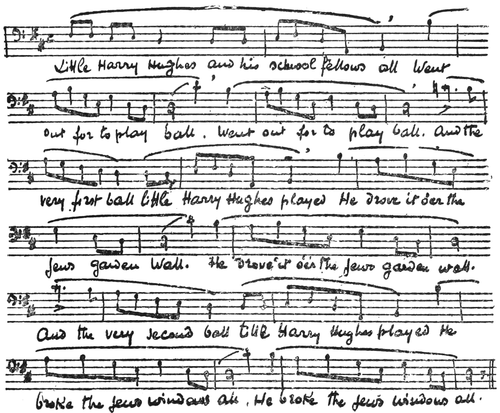 Little Harry Hughes and his schoolfellows all Went
out for to play ball. Went out for to play ball. And the
very first ball little Harry Hughes played He drove it o'er the
Jews garden Wall. He drove it o'er the Jews garden wall.
And the very second ball little Harry Hughes played He
broke the Jews windows all. He broke the Jews windows all.